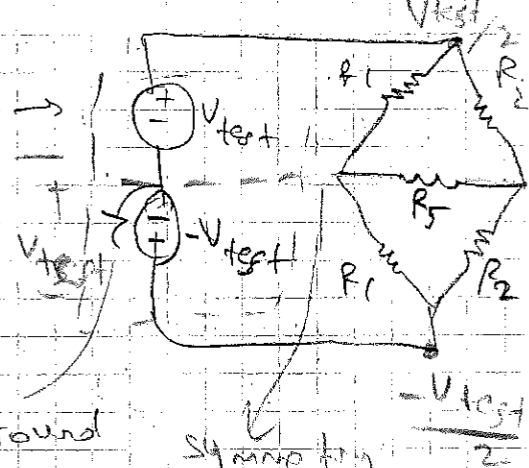 Vtest/2
R1
R2
+
-
Vtest
R5
-
+
-Vtest
Vtest
R1
R2
-Vtest
2
ound
symmetry